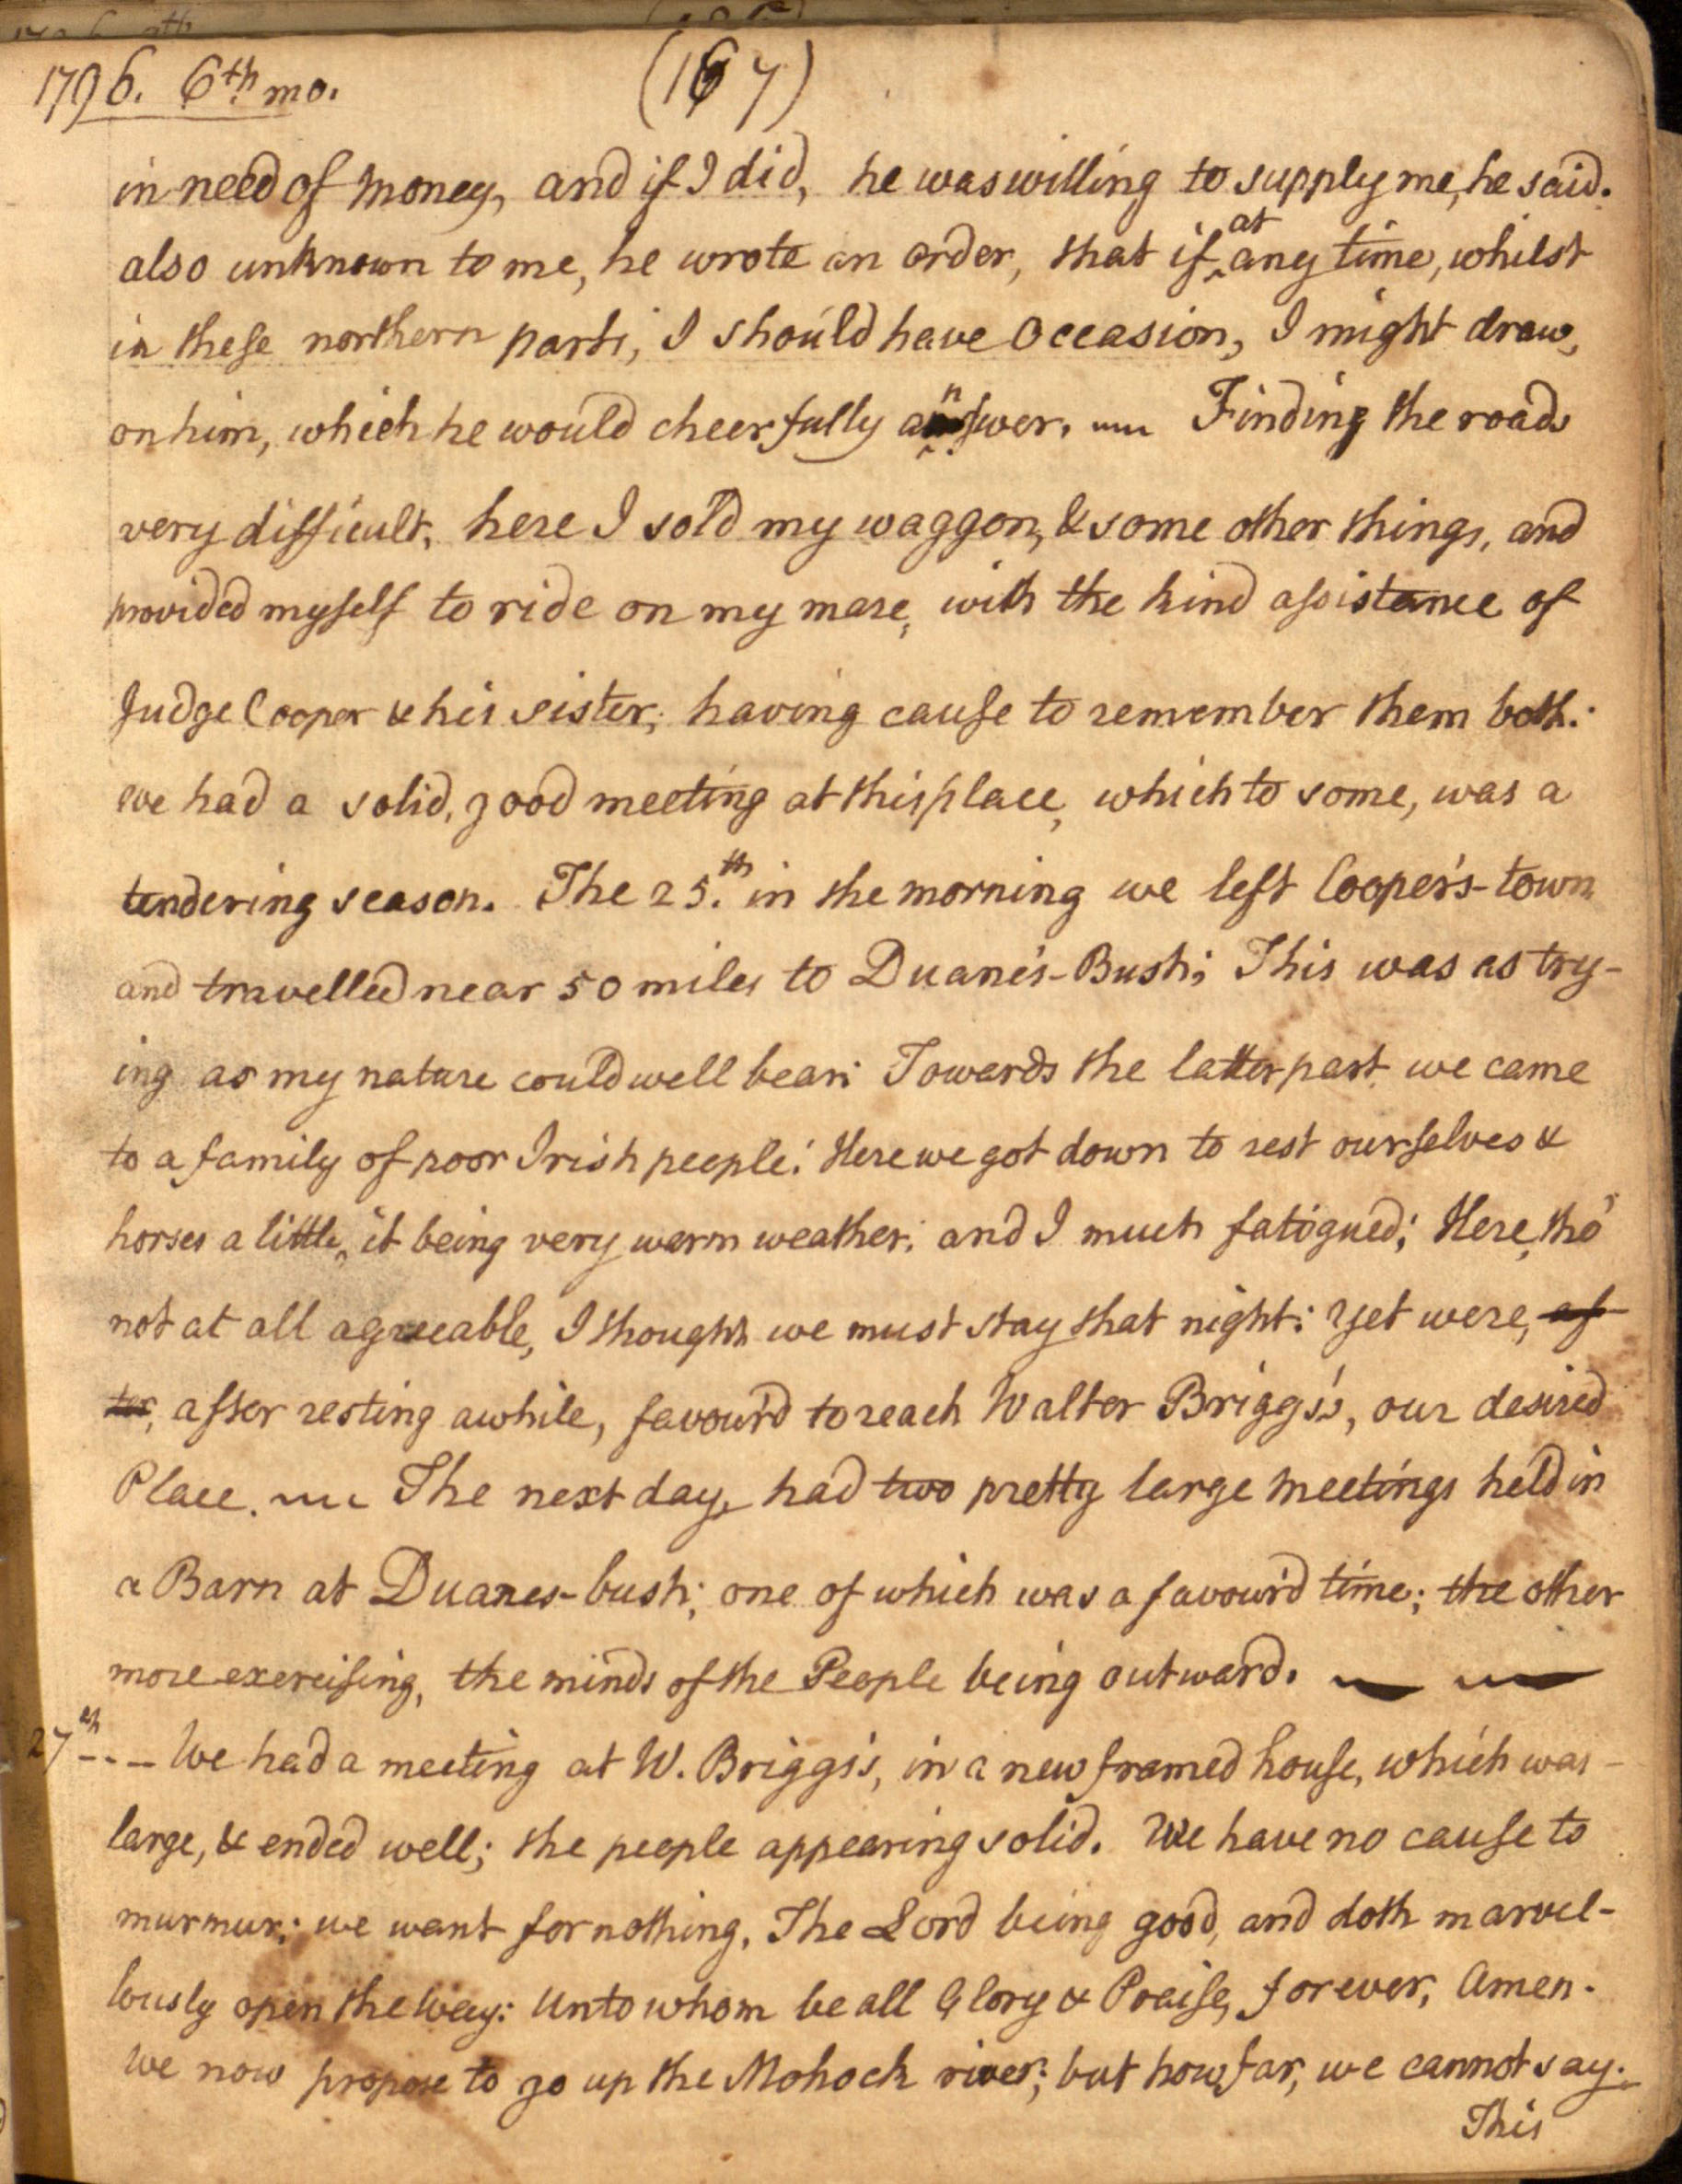 1796. 6th mo. (167)
in need of money, and if I did, he was willing to supply me, he said.
also unknown to me, he wrote an order, that if at any time, whilst
in these northern parts, I should have Occasion, I might draw,
on him, which he would cheerfully answer. Finding the roads
very difficult, here I sold my waggon, & some other things, and
provided myself to ride on my mare, with the kind assistance of
Judge Cooper & his sister; having cause to remember them both.
We had a solid, good meeting at this place, which to some, was a
tendering season. The 25.th in the morning we left Cooper's-town
and travelled near 50 miles to Duane's-Bush; This was as try-
ing as my nature could well bear: Towards the latter part we came
to a family of poor Irish people: Here we got down to rest ourselves &
horses a little, it being very warm weather; and I much fatigued; Here, tho'
not at all agreeable, I thought we must stay that night: Yet were, af-
ter, after resting awhile, favour'd to reach Walter Briggs's, our desired
Place. The next day, had two pretty large meetings held in
a Barn at Duanes-bush; one of which was a favour'd time; the other
more exercising, the minds of the People being outward.
27th - - - We had a meeting at W. Briggs's, in a new framed house, which was -
large, & ended well; the people appearing solid. We have no cause to
murmur; we want for nothing, The Lord being good, and doth marvel-
lously open the Way: Unto whom be all Glory & Praise, forever, Amen.
We now propose to go up the Mohock river; but how far, we cannot say.
This